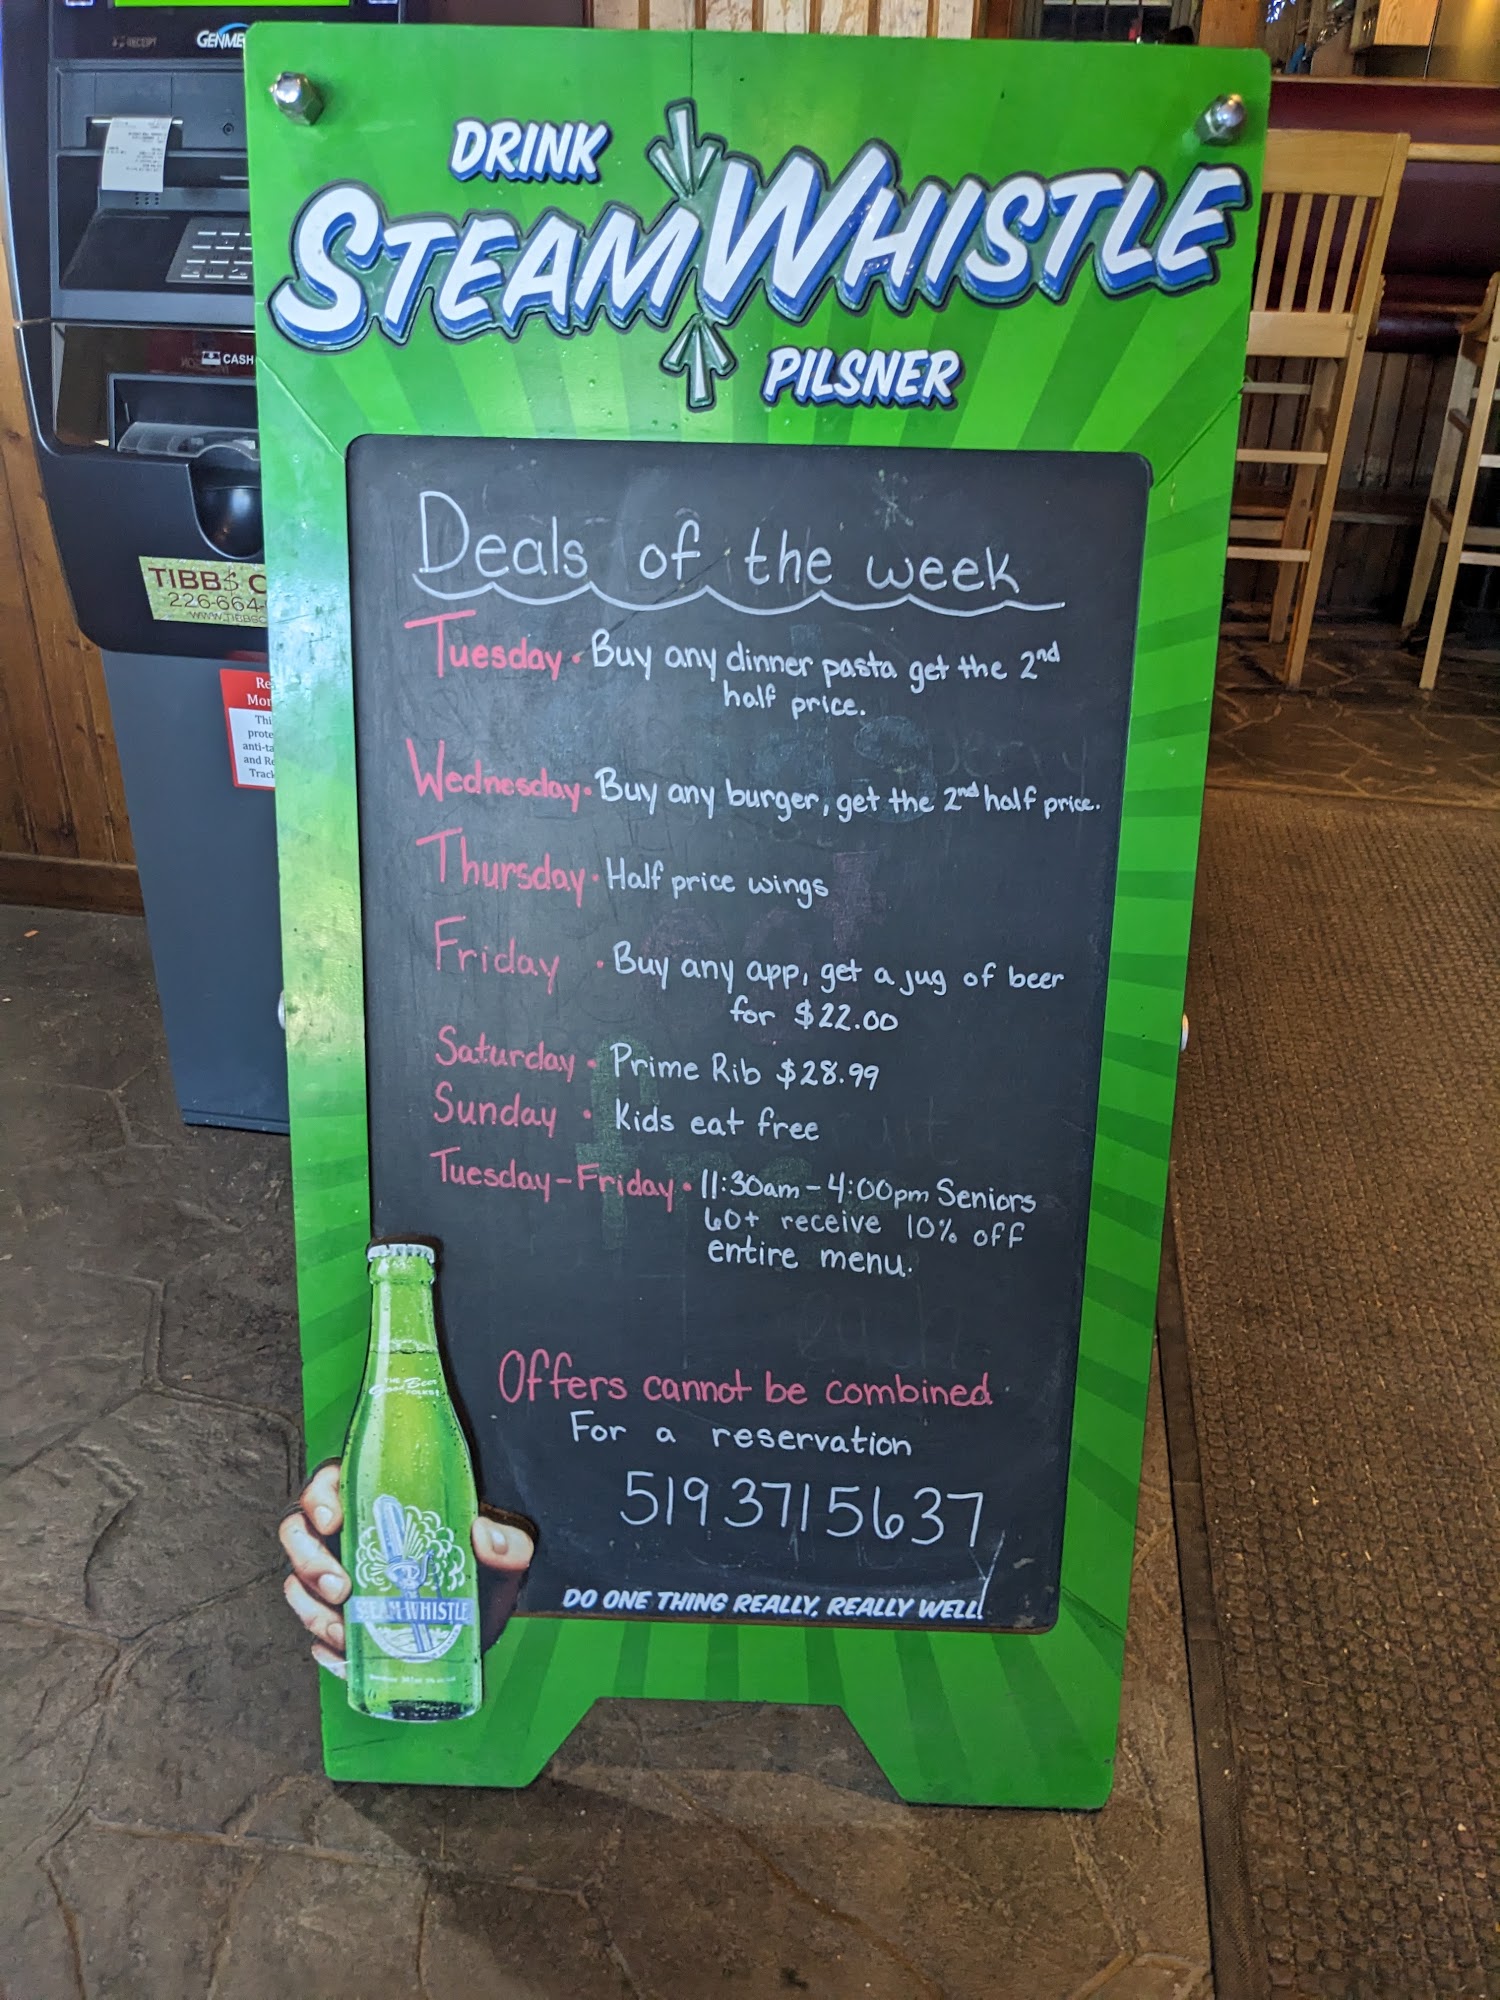 RECEIPT
GENME
CASH
TIBB$ C
226-664-
WWW.TIBBSC
DRINK
STEAMWHISTLE
PILSNER
Deals of the week
Tuesday • Buy any dinner pasta get the 2nd
half price.
Wednesday • Buy any burger, get the 2nd half price.
Thursday • Half price wings
Friday • Buy any app, get a jug of beer
for $22.00
Saturday • Prime Rib $28.99
Sunday • Kids eat free
Tuesday-Friday • 11:30am - 4:00pm Seniors
60+ receive 10% off
entire menu.
Offers cannot be combined
For a reservation
519 371 5637
DO ONE THING REALLY, REALLY WELL!
THE
Good Beer
FOLKS!
STEAM WHISTLE
Re
Mor
Thi
prote
anti-ta
and Re
Track